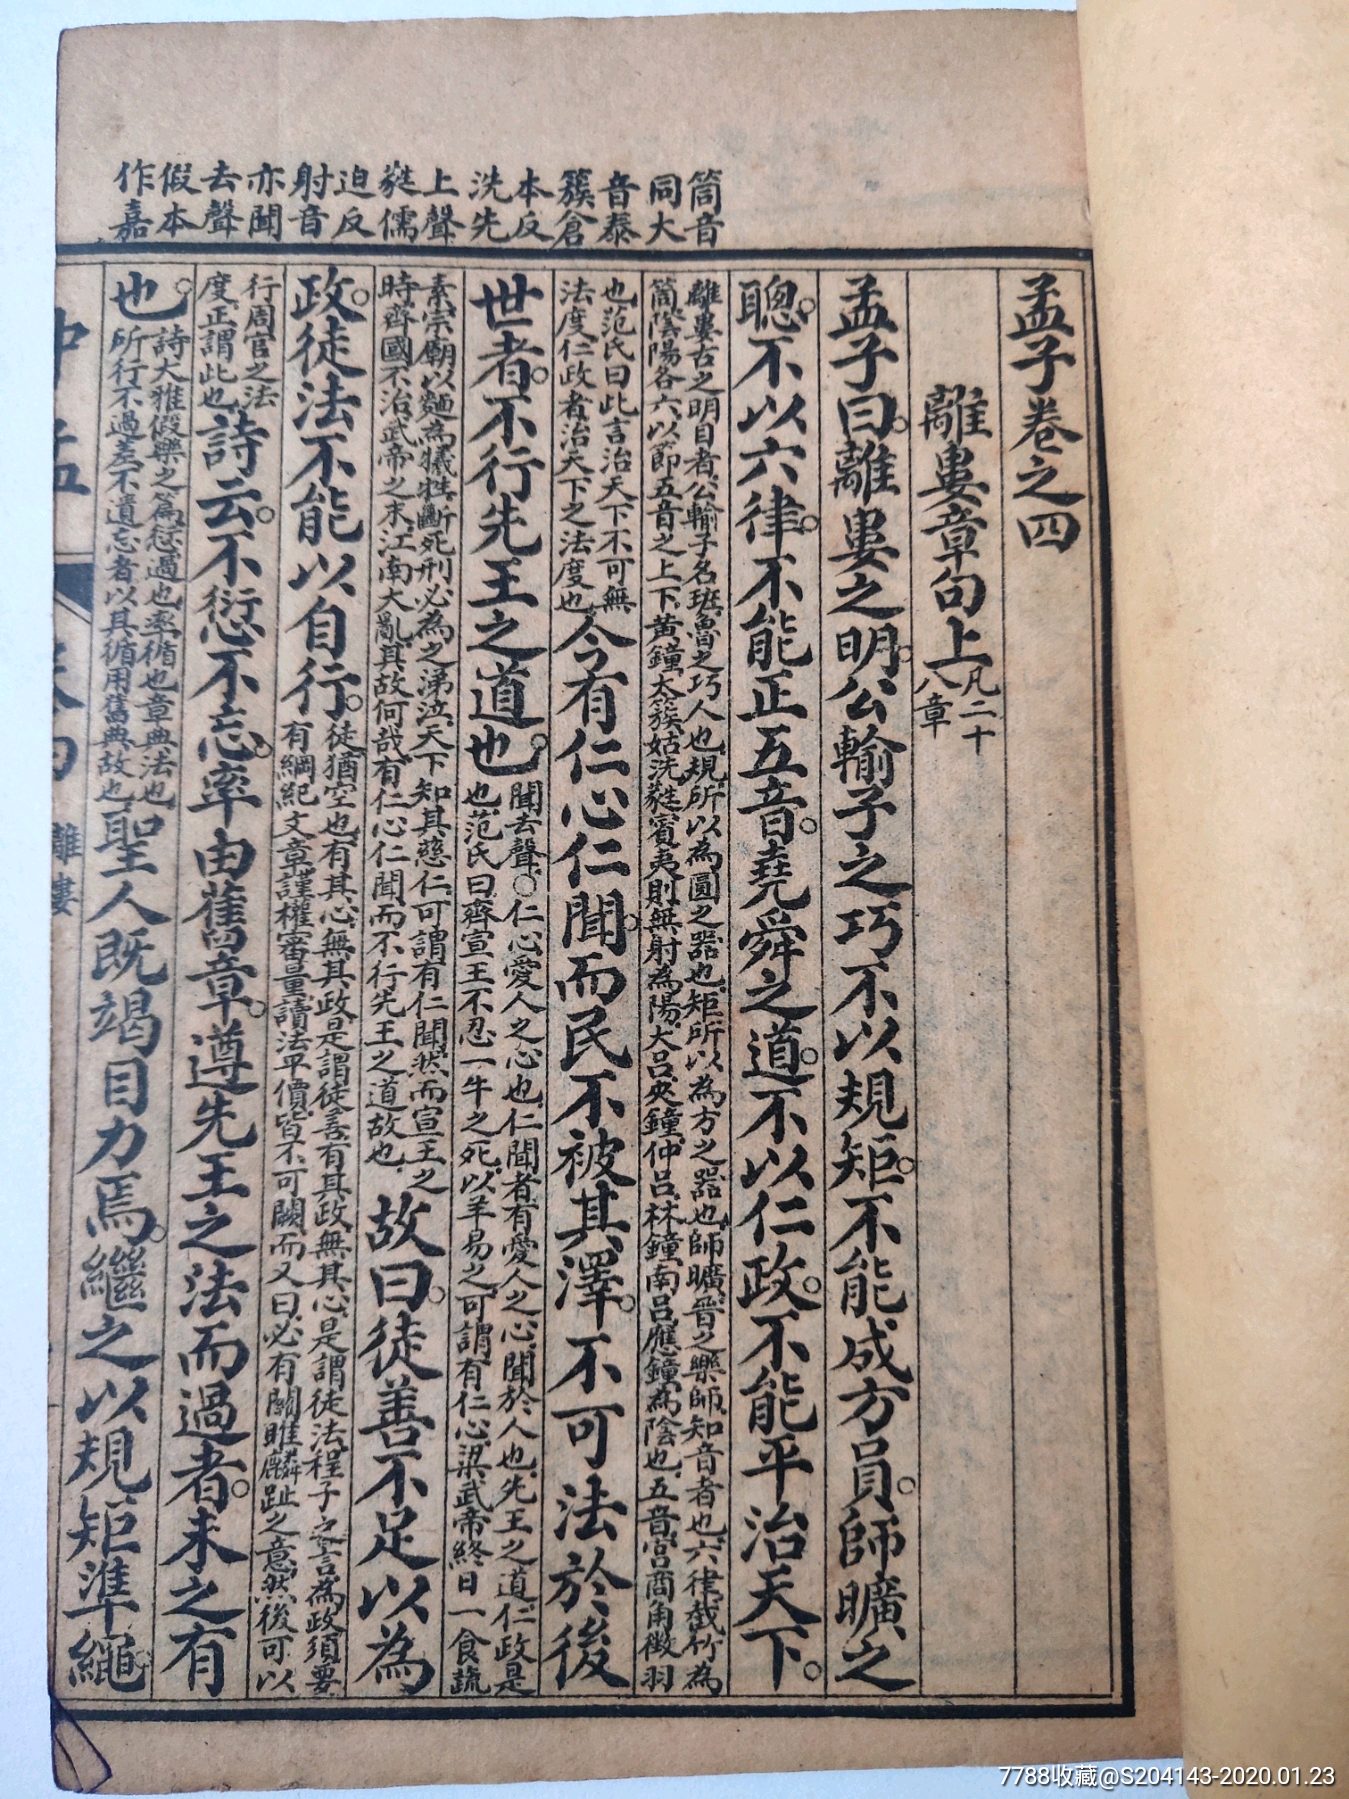 筒音
同大
音泰
簇倉
本反
洗先
上聲
蕤儒
迫反
射音
亦聞
去聲
假本
作嘉
孟子卷之四
離婁章句上
凡二十
八章
孟子曰離婁之明公輸子之巧不以規矩不能成方員師曠之
聰不以六律不能正五音堯舜之道不以仁政不能平治天下
離婁古之明目者公輸子名班魯之巧人也規所以為圓之器也矩所以為方之器也師曠晉之樂師知音者也六律截竹為
筒陰陽各六以節五音之上下黃鐘太簇姑洗蕤賓夷則無射為陽大呂夾鐘仲呂林鐘南呂應鐘為陰也五音宮商角徵羽
也范氏曰此言治天下不可無
法度仁政者治天下之法度也
今有仁心仁聞而民不被其澤不可法於後
世者不行先王之道也
聞去聲○仁心愛人之心也仁聞者有愛人之心聞於人也先王之道仁政是
也范氏曰齊宣王不忍一牛之死以羊易之可謂有仁心梁武帝終日一食蔬
素宗廟以麵為犧牲斷死刑必為之涕泣天下知其慈仁可謂有仁聞然而宣王之
時齊國不治武帝之末江南大亂其故何哉有仁心仁聞而不行先王之道故也
故曰徒善不足以為
政徒法不能以自行
徒猶空也有其心無其政是謂徒善有其政無其心是謂徒法程子之言為政須要
有綱紀文章謹權審量讀法平價皆不可闕而又曰必有關雎麟趾之意然後可以
行周官之法
度正謂此也
詩云不愆不忘率由舊章遵先王之法而過者未之有
也
詩大雅假樂之篇愆過也率循也章典法也
所行不過差不遺忘者以其循用舊典故也
聖人既竭目力焉繼之以規矩準繩
離婁
7788收藏@S204143-2020.01.23